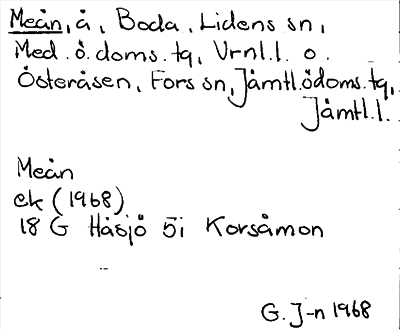 Meån, å, Boda, Lidens sn,
Med. ö. doms. tg, Vrnl.l. o.
Österåsen, Fors sn, Jämtl. ö doms. tg,
Jämtl. l.
Meån
ek (1968)
18 G Håsjö 5i Korsåmon
G. J-n 1968